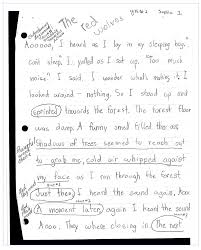 The red
wolves
"Aoooo," I heard as I lay in my sleeping bag. "I
can't sleep," I yelled as I sat up. "Too much
noise," I said. I wonder what's making it I
looked around - nothing. So I stand up and
sprinted towards the forest. The forest floor
was damp. A funny smell filled the air.
Shadows of trees seemed to reach out
to grab me, cold air whipped against
my face as I ran through the forest
Just then I heard the sound again, Aooo
A moment later again I heard the sound
Aooo. They where closing in. The next